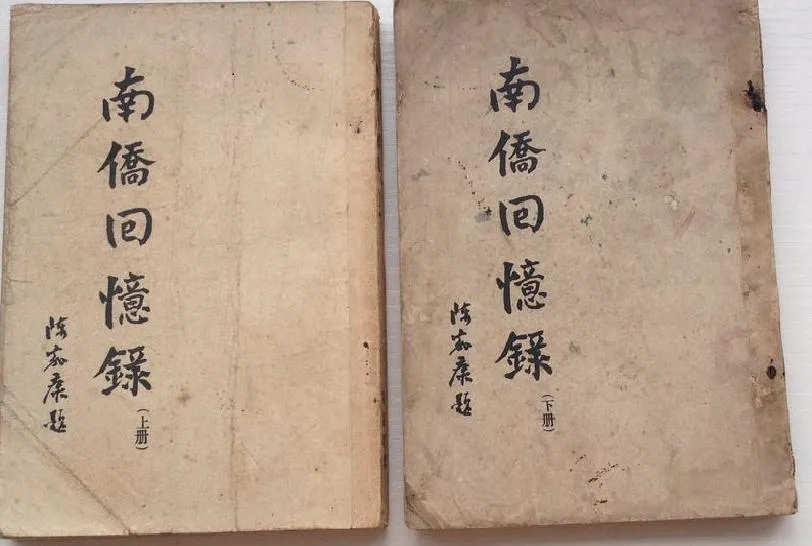 南僑回憶錄
（上册）
陳嘉庚題
南僑回憶錄
（下册）
陳嘉庚題